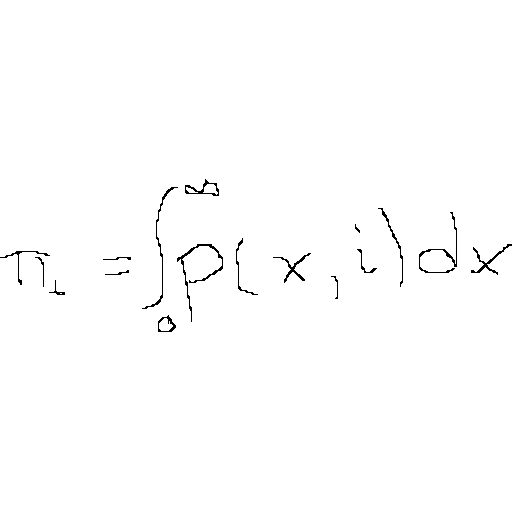 π_i = ∫_0^∞ p(x, i) dx